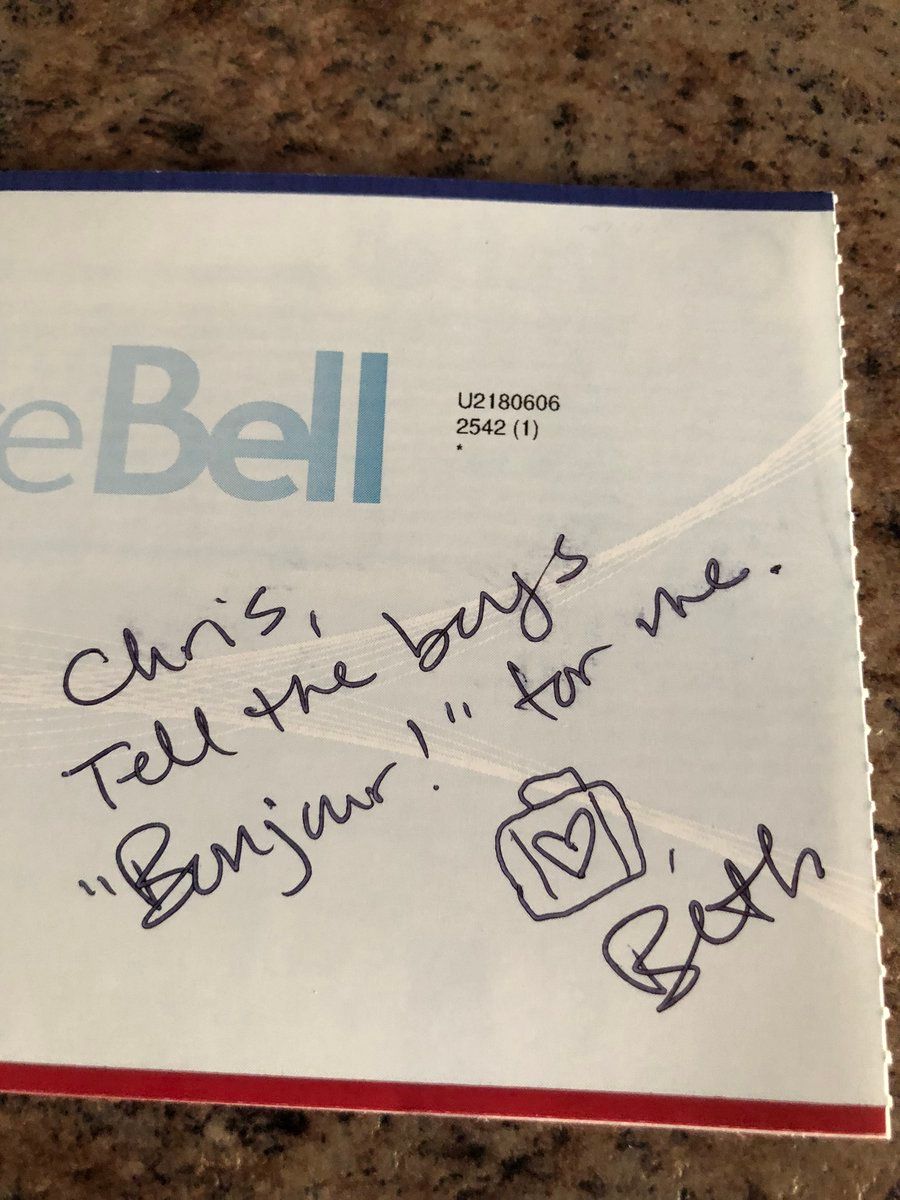 eBell
U2180606
2542 (1)
*
Chris,
Tell the boys
"Bonjour!" for me.
Beth